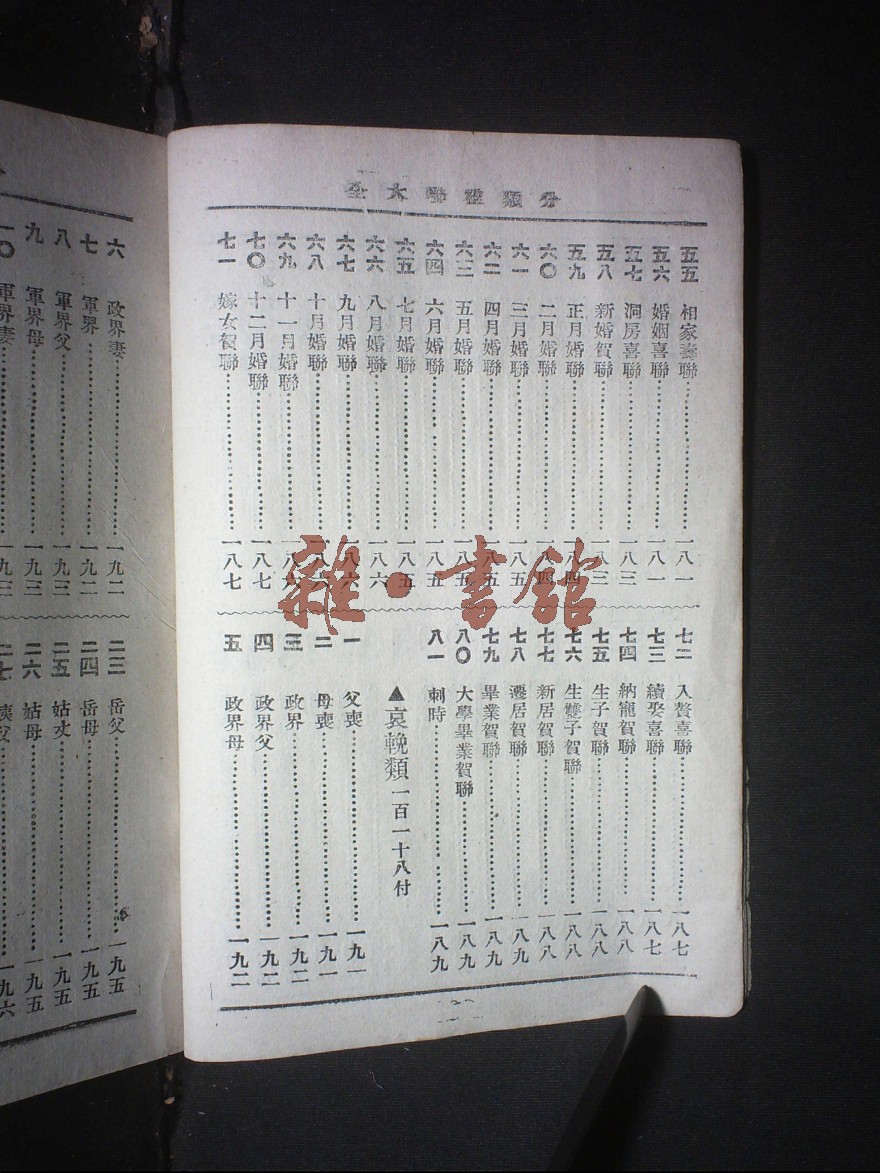 分類楹聯大全
五五 相家壽聯 一八一
五六 婚姻喜聯 一八一
五七 洞房喜聯 一八三
五八 新婚賀聯 一八三
五九 正月婚聯 一八四
六〇 二月婚聯 一八四
六一 三月婚聯 一八五
六二 四月婚聯 一八五
六三 五月婚聯 一八五
六四 六月婚聯 一八五
六五 七月婚聯 一八五
六六 八月婚聯 一八六
六七 九月婚聯 一八六
六八 十月婚聯 一八六
六九 十一月婚聯 一八六
七〇 十二月婚聯 一八七
七一 嫁女賀聯 一八七
七二 入贅喜聯 一八七
七三 續娶喜聯 一八七
七四 納寵賀聯 一八八
七五 生子賀聯 一八八
七六 生雙子賀聯 一八八
七七 新居賀聯 一八八
七八 遷居賀聯 一八九
七九 畢業賀聯 一八九
八〇 大學畢業賀聯 一八九
八一 刺時 一八九
▲哀輓類 一百一十八付
一 父喪 一九一
二 母喪 一九一
三 政界 一九二
四 政界父 一九二
五 政界母 一九二
六 政界妻 一九二
七 軍界 一九二
八 軍界父 一九三
九 軍界母 一九三
一〇 軍界妻 一九三
二三 岳父 一九五
二四 岳母 一九五
二五 姑丈 一九五
二六 姑母 一九五
二七 姨父 一九六
雜·書館